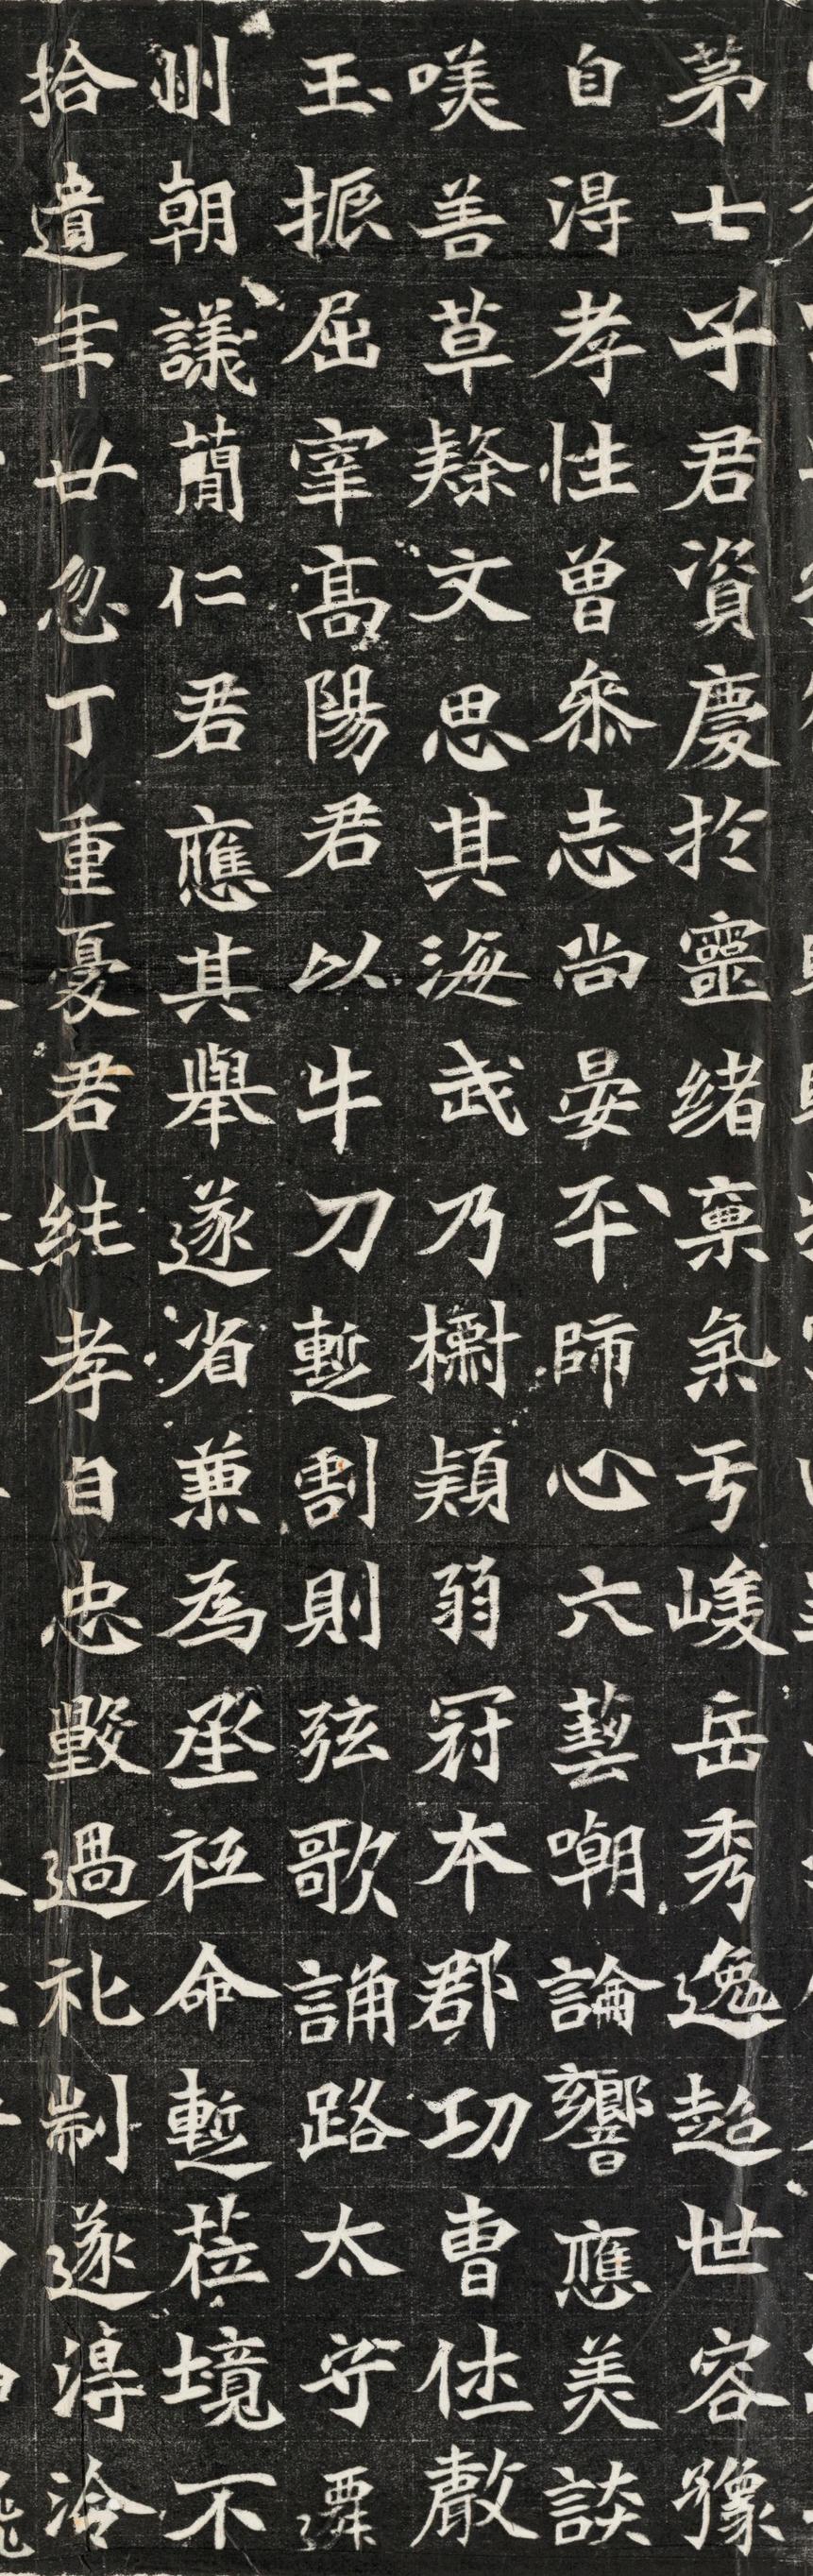 苐七子君資慶扵靈緒稟氣亐峻岳秀逸超世容豫
自淂孝性曾叅志尚晏平師心六藝嘲論響應美談
唉善草𥠖文思其海武乃櫹穎弱冠本郡功曹仕敵
玉振屈宰高陽君以牛刀蹔割則弦歌誦路太守遷
刪朝議蕳仁君應其舉遂省兼為丞祗命蹔莅境不
拾遺年廿忽丁重憂君純孝自忠毀過礼制遂淂冷